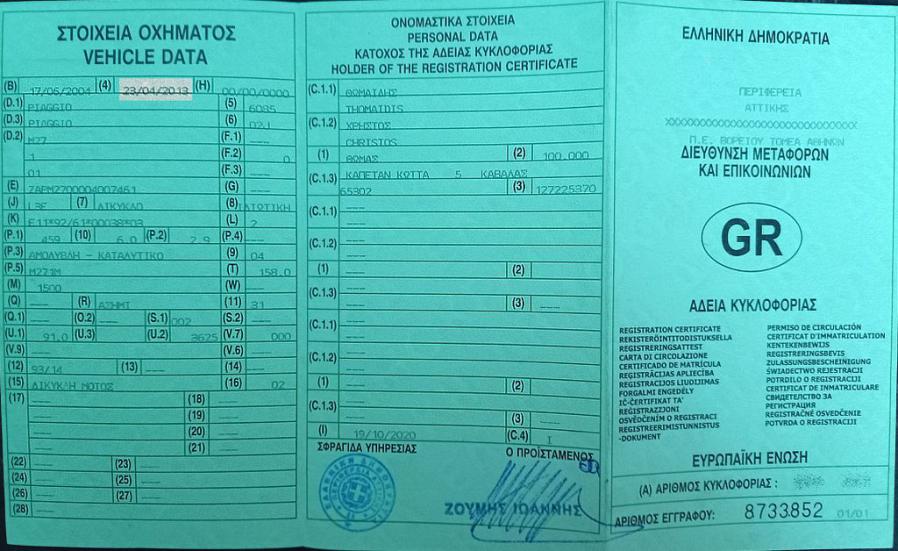 ΣΤΟΙΧΕΙΑ ΟΧΗΜΑΤΟΣ
VEHICLE DATA
(B) 17/06/2004 (4) 23/04/2013 (H) 00/00/0000
(D.1) PIAGGIO (5) 6085
(D.3) PIAGGIO (6) 02.1
(D.2) M27 (F.1) ----
1 (F.2) 0
01 (F.3) ----
(E) ZAPM2700004007461 (G) ----
(J) L3E (7) ΔΙΚΥΚΛΟ (8) ΙΔΙΩΤΙΚΗ
(K) E11*92/61*00038*03 (L) 2
(P.1) 459 (10) 6.0 (P.2) 2.9 (P.4) ----
(P.3) ΑΜΟΛΥΒΔΗ - ΚΑΤΑΛΥΤΙΚΟ (9) 04
(P.5) M271M (T) 158.0
(M) 1500 (W) ----
(Q) ---- (R) ΑΣΗΜΙ (11) 31
(O.1) ---- (O.2) ---- (S.1) 002 (S.2) ----
(U.1) 91.0 (U.3) (U.2) 3625 (V.7) 000
(V.9) ---- (V.6) ----
(12) 93/14 (13) ---- (14) ----
(15) ΔΙΚΥΚΛΗ ΜΟΤΟΣ (16) 02
(17) ---- (18) ----
---- (19) ----
---- (20) ----
---- (21) ----
(22) ---- (23) ----
(24) ---- (25) ----
(26) ---- (27) ----
(28) ----
ΟΝΟΜΑΣΤΙΚΑ ΣΤΟΙΧΕΙΑ
PERSONAL DATA
ΚΑΤΟΧΟΣ ΤΗΣ ΑΔΕΙΑΣ ΚΥΚΛΟΦΟΡΙΑΣ
HOLDER OF THE REGISTRATION CERTIFICATE
(C.1.1) ΘΩΜΑΙΔΗΣ
THOMAIDIS
(C.1.2) ΧΡΗΣΤΟΣ
CHRISTOS
(1) ΘΩΜΑΣ (2) 100.000
(C.1.3) ΚΑΠΕΤΑΝ ΚΩΤΤΑ 5 ΚΑΒΑΛΑΣ
65302 (3) 127225370
(C.1.1) ----
----
(C.1.2) ----
----
(1) ---- (2)
(C.1.3) ----
---- (3) ----
(C.1.1) ----
----
(C.1.2) ----
----
(1) ---- (2)
(C.1.3) ----
---- (3) ----
(I) 19/10/2020 (C.4) I
ΣΦΡΑΓΙΔΑ ΥΠΗΡΕΣΙΑΣ Ο ΠΡΟΪΣΤΑΜΕΝΟΣ
ΖΟΥΜΗΣ ΙΩΑΝΝΗΣ
ΕΛΛΗΝΙΚΗ ΔΗΜΟΚΡΑΤΙΑ
ΠΕΡΙΦΕΡΕΙΑ
ΑΤΤΙΚΗΣ
XXXXXXXXXXXXXXXXXXXXXXXXXXXXXX
Π.Ε. ΒΟΡΕΙΟΥ ΤΟΜΕΑ ΑΘΗΝΩΝ
ΔΙΕΥΘΥΝΣΗ ΜΕΤΑΦΟΡΩΝ
ΚΑΙ ΕΠΙΚΟΙΝΩΝΙΩΝ
GR
ΑΔΕΙΑ ΚΥΚΛΟΦΟΡΙΑΣ
REGISTRATION CERTIFICATE
REKISTERÖINTITODISTUKSELLA
REGISTRERINGSATTEST
CARTA DI CIRCOLAZIONE
CERTIFICADO DE MATRÍCULA
REĢISTRĀCIJAS APLIECĪBA
REGISTRACIJOS LIUDIJIMAS
FORGALMI ENGEDÉLY
IĊ-ĊERTIFIKAT TA'
REĠISTRAZZJONI
OSVĚDČENÍM O REGISTRACI
REGISTREERIMISTUNNISTUS
-DOKUMENT
PERMISO DE CIRCULACIÓN
CERTIFICAT D'IMMATRICULATION
KENTEKENBEWIJS
REGISTRERINGSBEVIS
ZULASSUNGSBESCHEINIGUNG
ŚWIADECTWO REJESTRACJI
POTRDILO O REGISTRACIJI
CERTIFICAT DE INMATRICULARE
СВИДЕТЕЛСТВО ЗА
РЕГИСТРАЦИЯ
REGISTRAČNÉ OSVEDČENIE
POTVRDA O REGISTRACIJI
ΕΥΡΩΠΑΪΚΗ ΕΝΩΣΗ
(A) ΑΡΙΘΜΟΣ ΚΥΚΛΟΦΟΡΙΑΣ :
ΑΡΙΘΜΟΣ ΕΓΓΡΑΦΟΥ: 8733852 01/01